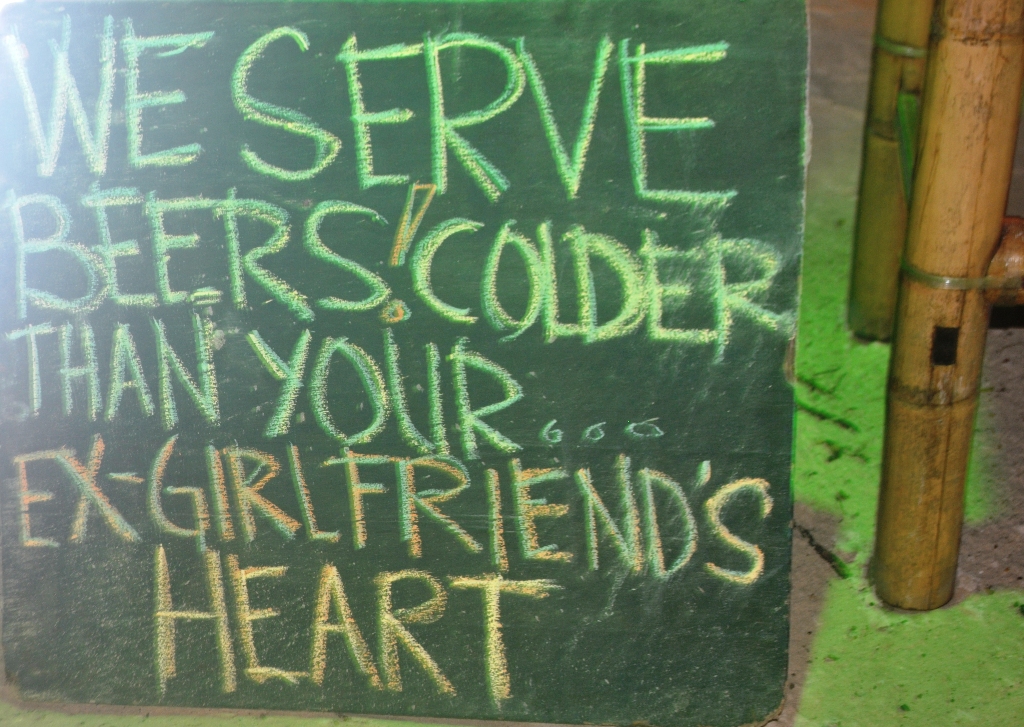 WE SERVE
BEERS! COLDER
THAN YOUR...
EX-GIRLFRIEND'S
HEART